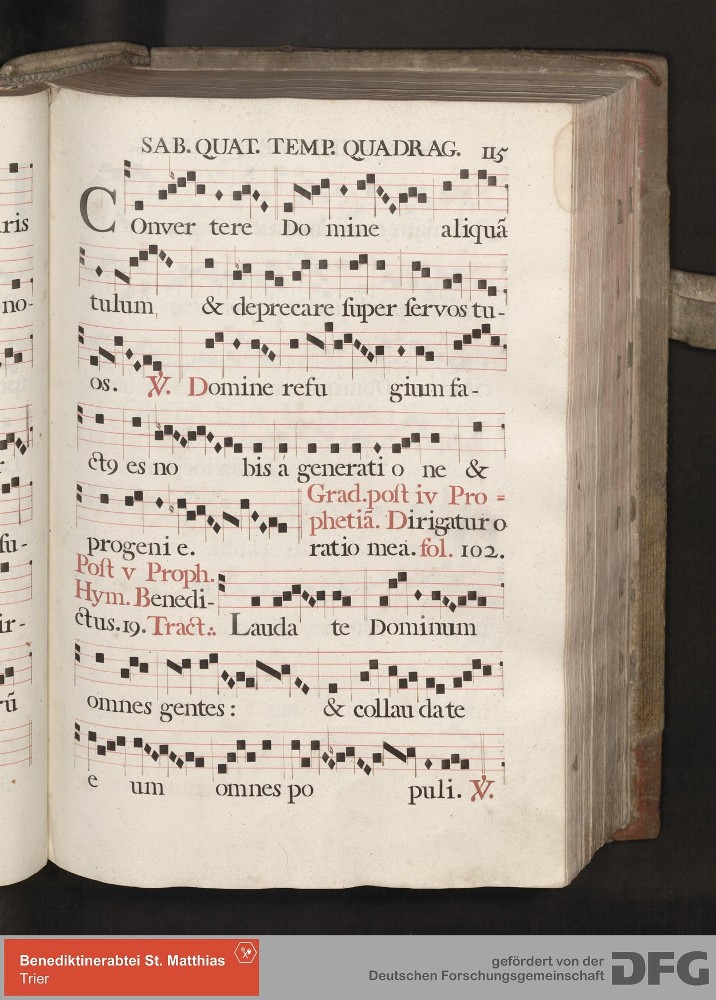 SAB. QUAT. TEMP. QUADRAG. 115
COnver tere Do mine aliquã
tulum & deprecare ſuper ſervos tu-
os. ℣. Domine refu gium fa-
ct9 es no bis a generati o ne &
progeni e. Grad. poſt iv Pro=
phetiã. Dirigatur o
ratio mea. fol. 102.
Poſt v Proph.
Hym. Benedi-
ctus. 19. Tract.: Lauda te Dominum
omnes gentes: & collau da te
e um omnes po puli. ℣.
ris
no-
r
ſu-
ir-
rũ
Benediktinerabtei St. Matthias
Trier
gefördert von der
Deutschen Forschungsgemeinschaft DFG